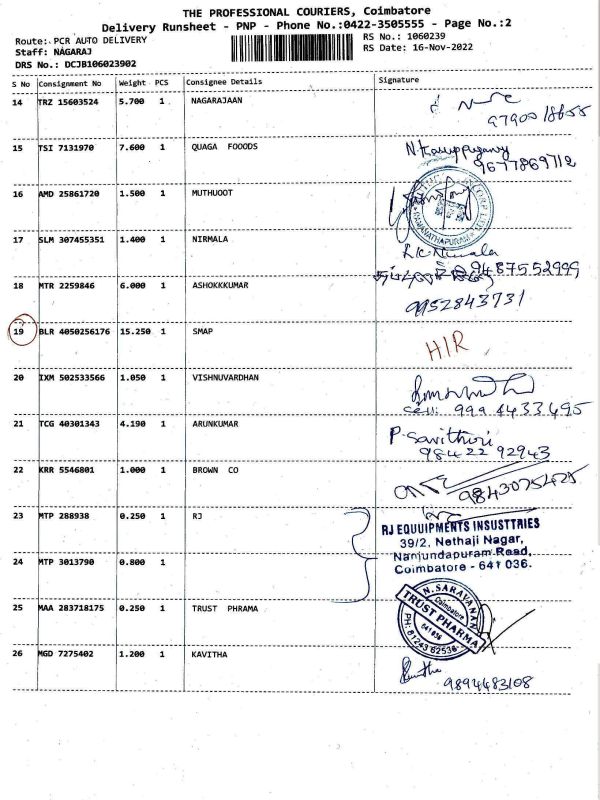 THE PROFESSIONAL COURIERS, Coimbatore
Delivery Runsheet - PNP - Phone No.:0422-3505555 - Page No.:2
Route: PCR AUTO DELIVERY
RS No.: 1060239
Staff: NAGARAJ
RS Date: 16-Nov-2022
DRS No.: DCJB106023902
S No Consignment No Weight PCS Consignee Details Signature
14 TRZ 15603524 5.700 1 NAGARAJAAN
15 TSI 7131970 7.600 1 QUAGA FOOODS
9677869712
16 AMD 25861720 1.500 1 MUTHUOOT
RAMANATHAPURAM
17 SLM 307455351 1.400 1 NIRMALA
9487552999
18 MTR 2259846 6.000 1 ASHOKKKUMAR
9952843731
19 BLR 4050256176 15.250 1 SMAP H/R
20 IXM 502533566 1.050 1 VISHNUVARDHAN
Cell: 999 4433495
21 TCG 40301343 4.190 1 ARUNKUMAR P. Savithiri
98422 92943
22 KRR 5546801 1.000 1 BROWN CO
9843075425
23 MTP 288938 0.250 1 RJ
RJ EQUUIPMENTS INSUSTTRIES
39/2, Nethaji Nagar,
Nanjundapuram Road,
Coimbatore - 641 036.
24 MTP 3013790 0.800 1
25 MAA 283718175 0.250 1 TRUST PHRAMA
N. SARAVANAN
Coimbatore
TRUST PHARMA
641 036
PH: 81243 62536
26 MGD 7275402 1.200 1 KAVITHA
9894483108